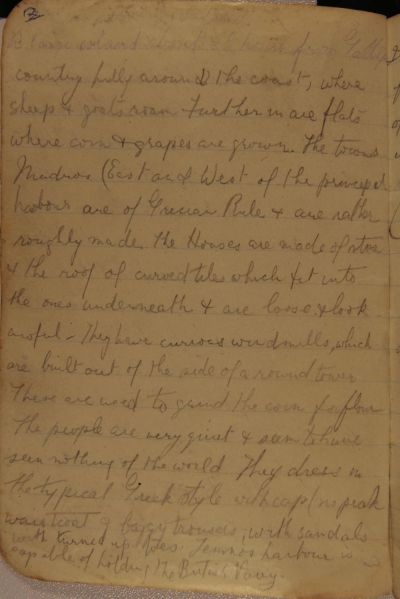 2
is hours from Gallip
country hilly around the coast, where
sheep & goats roam. Further in are flats
where corn & grapes are grown. The towns
Mudros (East and West of the principal
harbour are of Grecian Rule & are rather
roughly made. The Houses are made of stone
& the roof of curved tiles which fit into
the ones underneath & are loose & look
awful - They have curious windmills, which
are built out of the side of a round tower
These are used to grind the corn for flour
The people are very quiet & seem to have
seen nothing of the world. They dress in
the typical Greek style with cap (no peak
waistcoat & baggy trousers, with sandals
with turned up toes. Lemnos harbour is
capable of holding the British Navy.